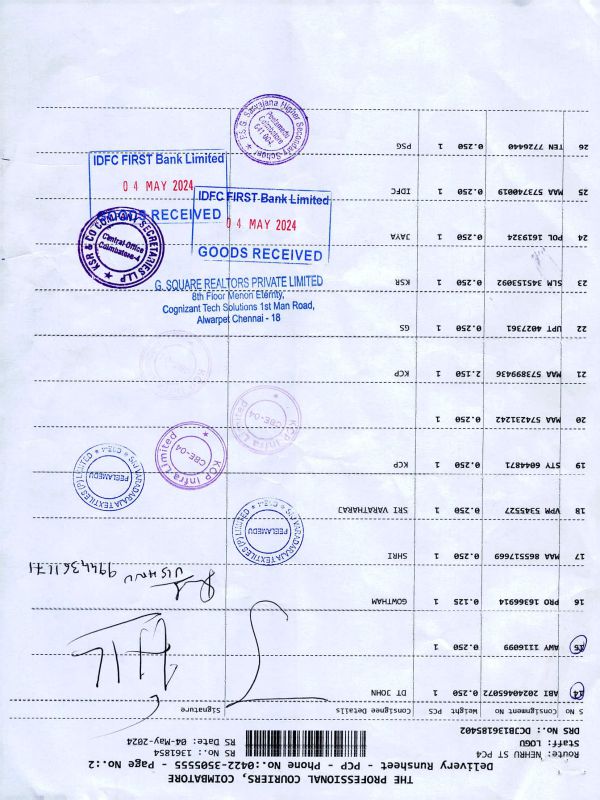 THE PROFESSIONAL COURIERS, COIMBATORE
Delivery Runsheet - PCP - Phone No.:0422-3505555 - Page No.:2
Route: NEHRU ST PC4
Staff: LOGU
DRS No.: DCJB136185402
RS No.: 1361854
RS Date: 04-May-2024
S No Consignment No Weight PCS Consignee Details Signature
14 ABI 20240465072 0.250 1 DT JOHN
15 AWY 1116099 0.250 1
16 PRO 16366914 0.125 1 GOWTHAM
17 MAA 865517669 0.250 1 SHRI
18 VPM 5345527 0.250 1 SRI VARATHARAJ
19 STY 6044871 0.250 1 KCP
20 MAA 574231242 0.250 1
21 MAA 573899436 2.150 1 KCP
22 UPT 4027361 0.250 1 GS
23 SLM 345153092 0.250 1 KSR
24 POL 1619324 0.250 1 JAYA
25 MAA 573740019 0.250 1 IDFC
26 TEN 7726440 0.250 1 PSG
VISHNU
9944361171
SRI VARADARAJA TEXTILES (P) LIMITED
PEELAMEDU
CBE-4
SRI VARADARAJA TEXTILES (P) LIMITED
PEELAMEDU
CBE-4
KCP Infra Limited
CBE-04
KCP Infra Limited
CBE-04
G. SQUARE REALTORS PRIVATE LIMITED
8th Floor Menon Eternity,
Cognizant Tech Solutions 1st Man Road,
Alwarpet Chennai - 18
KSR & CO COMPANY SECRETARIES LLP
Central Office
Coimbatore-4
IDFC FIRST Bank Limited
04 MAY 2024
GOODS RECEIVED
IDFC FIRST Bank Limited
04 MAY 2024
GOODS RECEIVED
P.S.G. Sarvajana Higher Secondary School
Peelamedu
Coimbatore
641 004